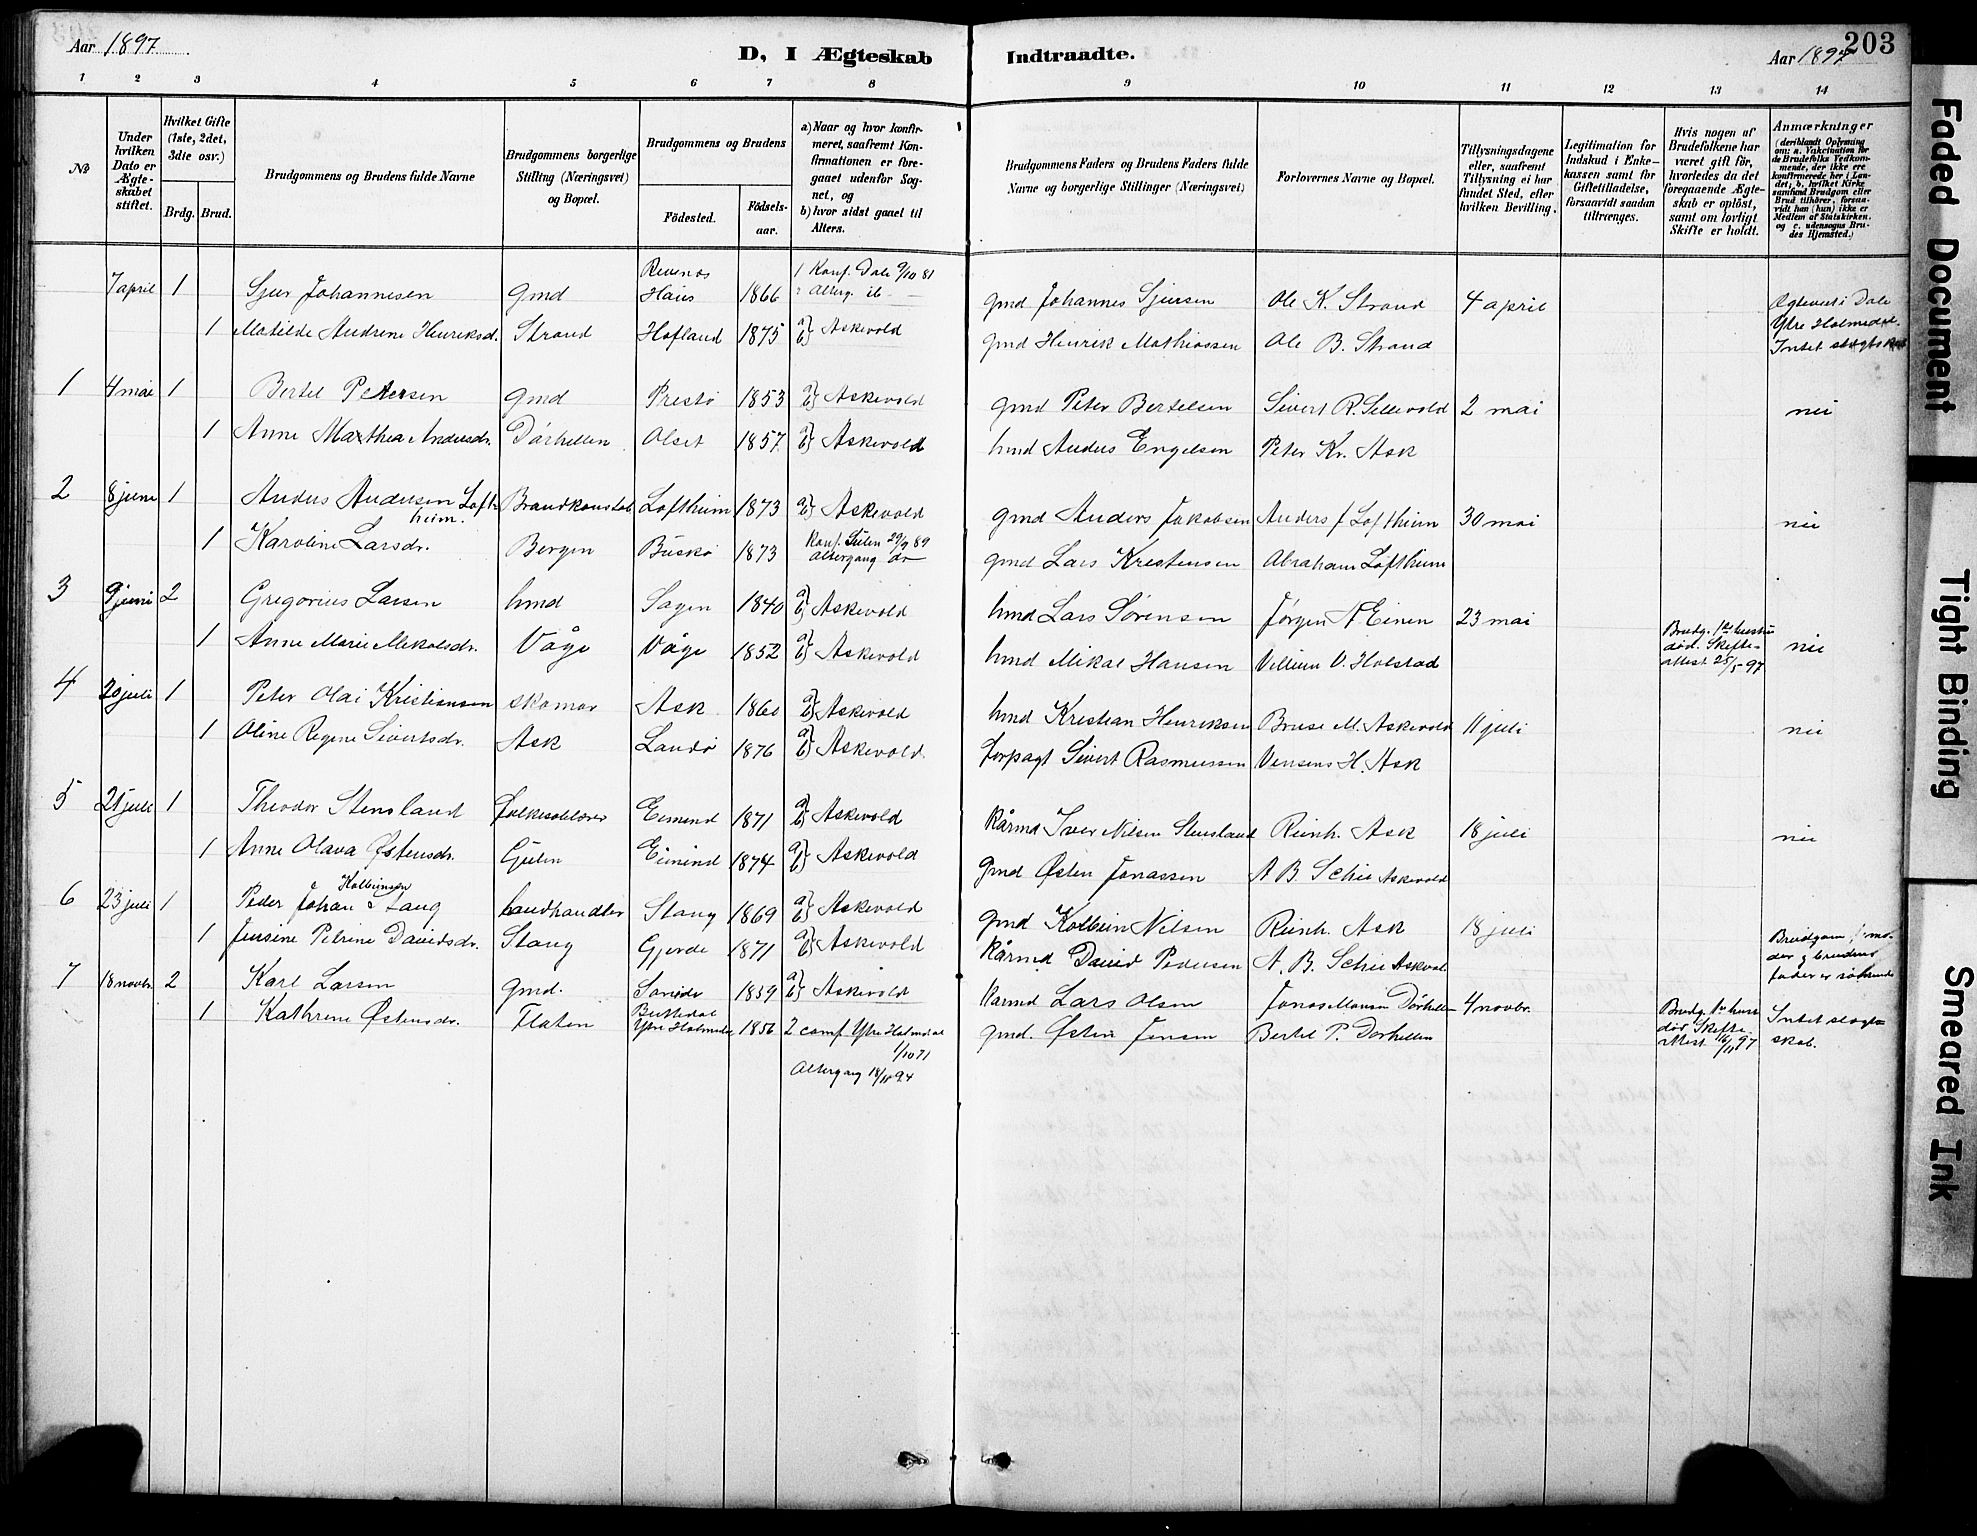 Aar 1897
D, I Ægteskab Indtraadte.
Aar 1897
203
1 2 3 4 5 6 7 8 9 10 11 12 13 14
No
Under hvilken Dato er Ægteskabet stiftet.
Hvilket Gifte (1ste, 2det, 3die osv.)
Brdg. Brud.
Brudgommens og Brudens fulde Navne
Brudgommens borgerlige Stilling (Næringsvei) og Bopæl.
Brudgommens og Brudens
Födested.
Födselsaar.
a) Naar og hvor konfirmeret, saafremt Konfirmationen er foregaaet udenfor Sognet, og
b) hvor sidst gaaet til Alters.
Brudgommens Faders og Brudens Faders fulde Navne og borgerlige Stillinger (Næringsvei)
Forlovernes Navne og Bopæl.
Tillysningsdagene eller, saafremt Tillysning ei har fundet Sted, efter hvilken Bevilling.
Legitimation for Indskud i Enkekassen samt for Giftetilladelse, forsaavidt saadan tiltrænges.
Hvis nogen af Brudefolkene har været gift för, hvorledes da det foregaaende Ægteskab er oplöst, samt om lovligt Skifte er holdt.
Anmærkninger (deriblandt Oplysning om: a. Vakcination for de Brudefolks Vedkommende, der ikke ere konfirmerede her i Landet; b. hvilket Kirkesamfund Brudgom eller Brud tilhörer, forsaavidt han (hun) ikke er Medlem af Statskirken, og c. udensogns Brudes Hjemsted.)
7 april 1 Sjur Johannesen gmd Haus 1866 1 Konf. Dale 9/10 81 Alterg. ib gmd Johannes Sjursen Ole K. Strand 4 april Ægteviet i Dale
1 Matilde Andrine Henriksd. Strand Hofland 1875 a) b) Askevold gmd Henrik Mathiassen Ole B. Strand Ytre Holmedal. Intet slægtskab
1 4 mai 1 Bertel Petersen gmd Prestö 1853 a) b) Askevold gmd Peter Bertelsen Sivert R. Sellevold 2 mai nei
1 Anne Marthea Andersdr. Dörhellen Olset 1857 a) b) Askevold hmd Anders Engelsen Peter Kr. Ask
2 8 juni 1 Anders Andersen Loftheim. Brandkonstab Loftheim 1873 a) b) Askevold gmd Anders Jakobsen Anders J Loftheim 30 mai nei
1 Karoline Larsdr. Bergen Buskö 1873 Konf. Sulen 29/9 89 Altergang do gmd Lars Kristensen Abraham Loftheim
3 9 juni 2 Gregorius Larsen hmd Sagen 1840 a) b) Askevold hmd Lars Sörensen Jörgen N Einen 23 mai Brudg. 1ste hustru död. Skifteattest 25/5 97 nei
1 Anne Marie Mikalsdr. Våge Våge 1852 a) b) Askevold hmd Mikal Hansen Villum V. Holstad
4 20 juli 1 Peter Olai Kristiansen skomar Ask 1860 a) b) Askevold hmd Kristian Henriksen Bruse M. Askevold 11 juli nei
1 Oline Regine Sivertsdr. Ask Landö 1876 a) b) Askevold. forpagt Sivert Rasmussen Vensens H. Ask
5 21 juli 1 Theodor Stensland folkeskolelærer Eimind 1871 a) b) Askevold kårmd Iver Nilsen Stensland Reinh. Ask 18 juli nei
1 Anne Olava Östensdr. Gulen Eimind 1874 a) b) Askevold gmd Östen Jonassen A B. Schei Askevold
6 23 juli 1 Peder Johan Kolbeinsen Stang landhandler Stang 1869 a) b) Askevold gmd Kolbein Nilsen Reinh. Ask 18 juli
1 Jensine Petrine Davidsdr. Stang Gjerde 1871 a) b) Askevold kårmd David Pedersen A. B. Schei Askvol. Brudgom moder og brudens fader er söskende
7 18 novbr. 2 Karl Larsen gmd. 1839 a) b) Askevold kårmd Lars Olsen Jonas Monsen Dörhellen 4 novbr. Brudg. 1ste hustr död Skifteattest 16/11 97 Intet slægtskab.
1 Kathrine Östensdr. Flaten Ytre Holmedal 1856 2 conf Ytre Holmedal 1/10 71 gmd. Östen Jensen Bertel P. Dörhellen
Altergang 18/11 94
Faded Document
Tight Binding
Smeared Ink